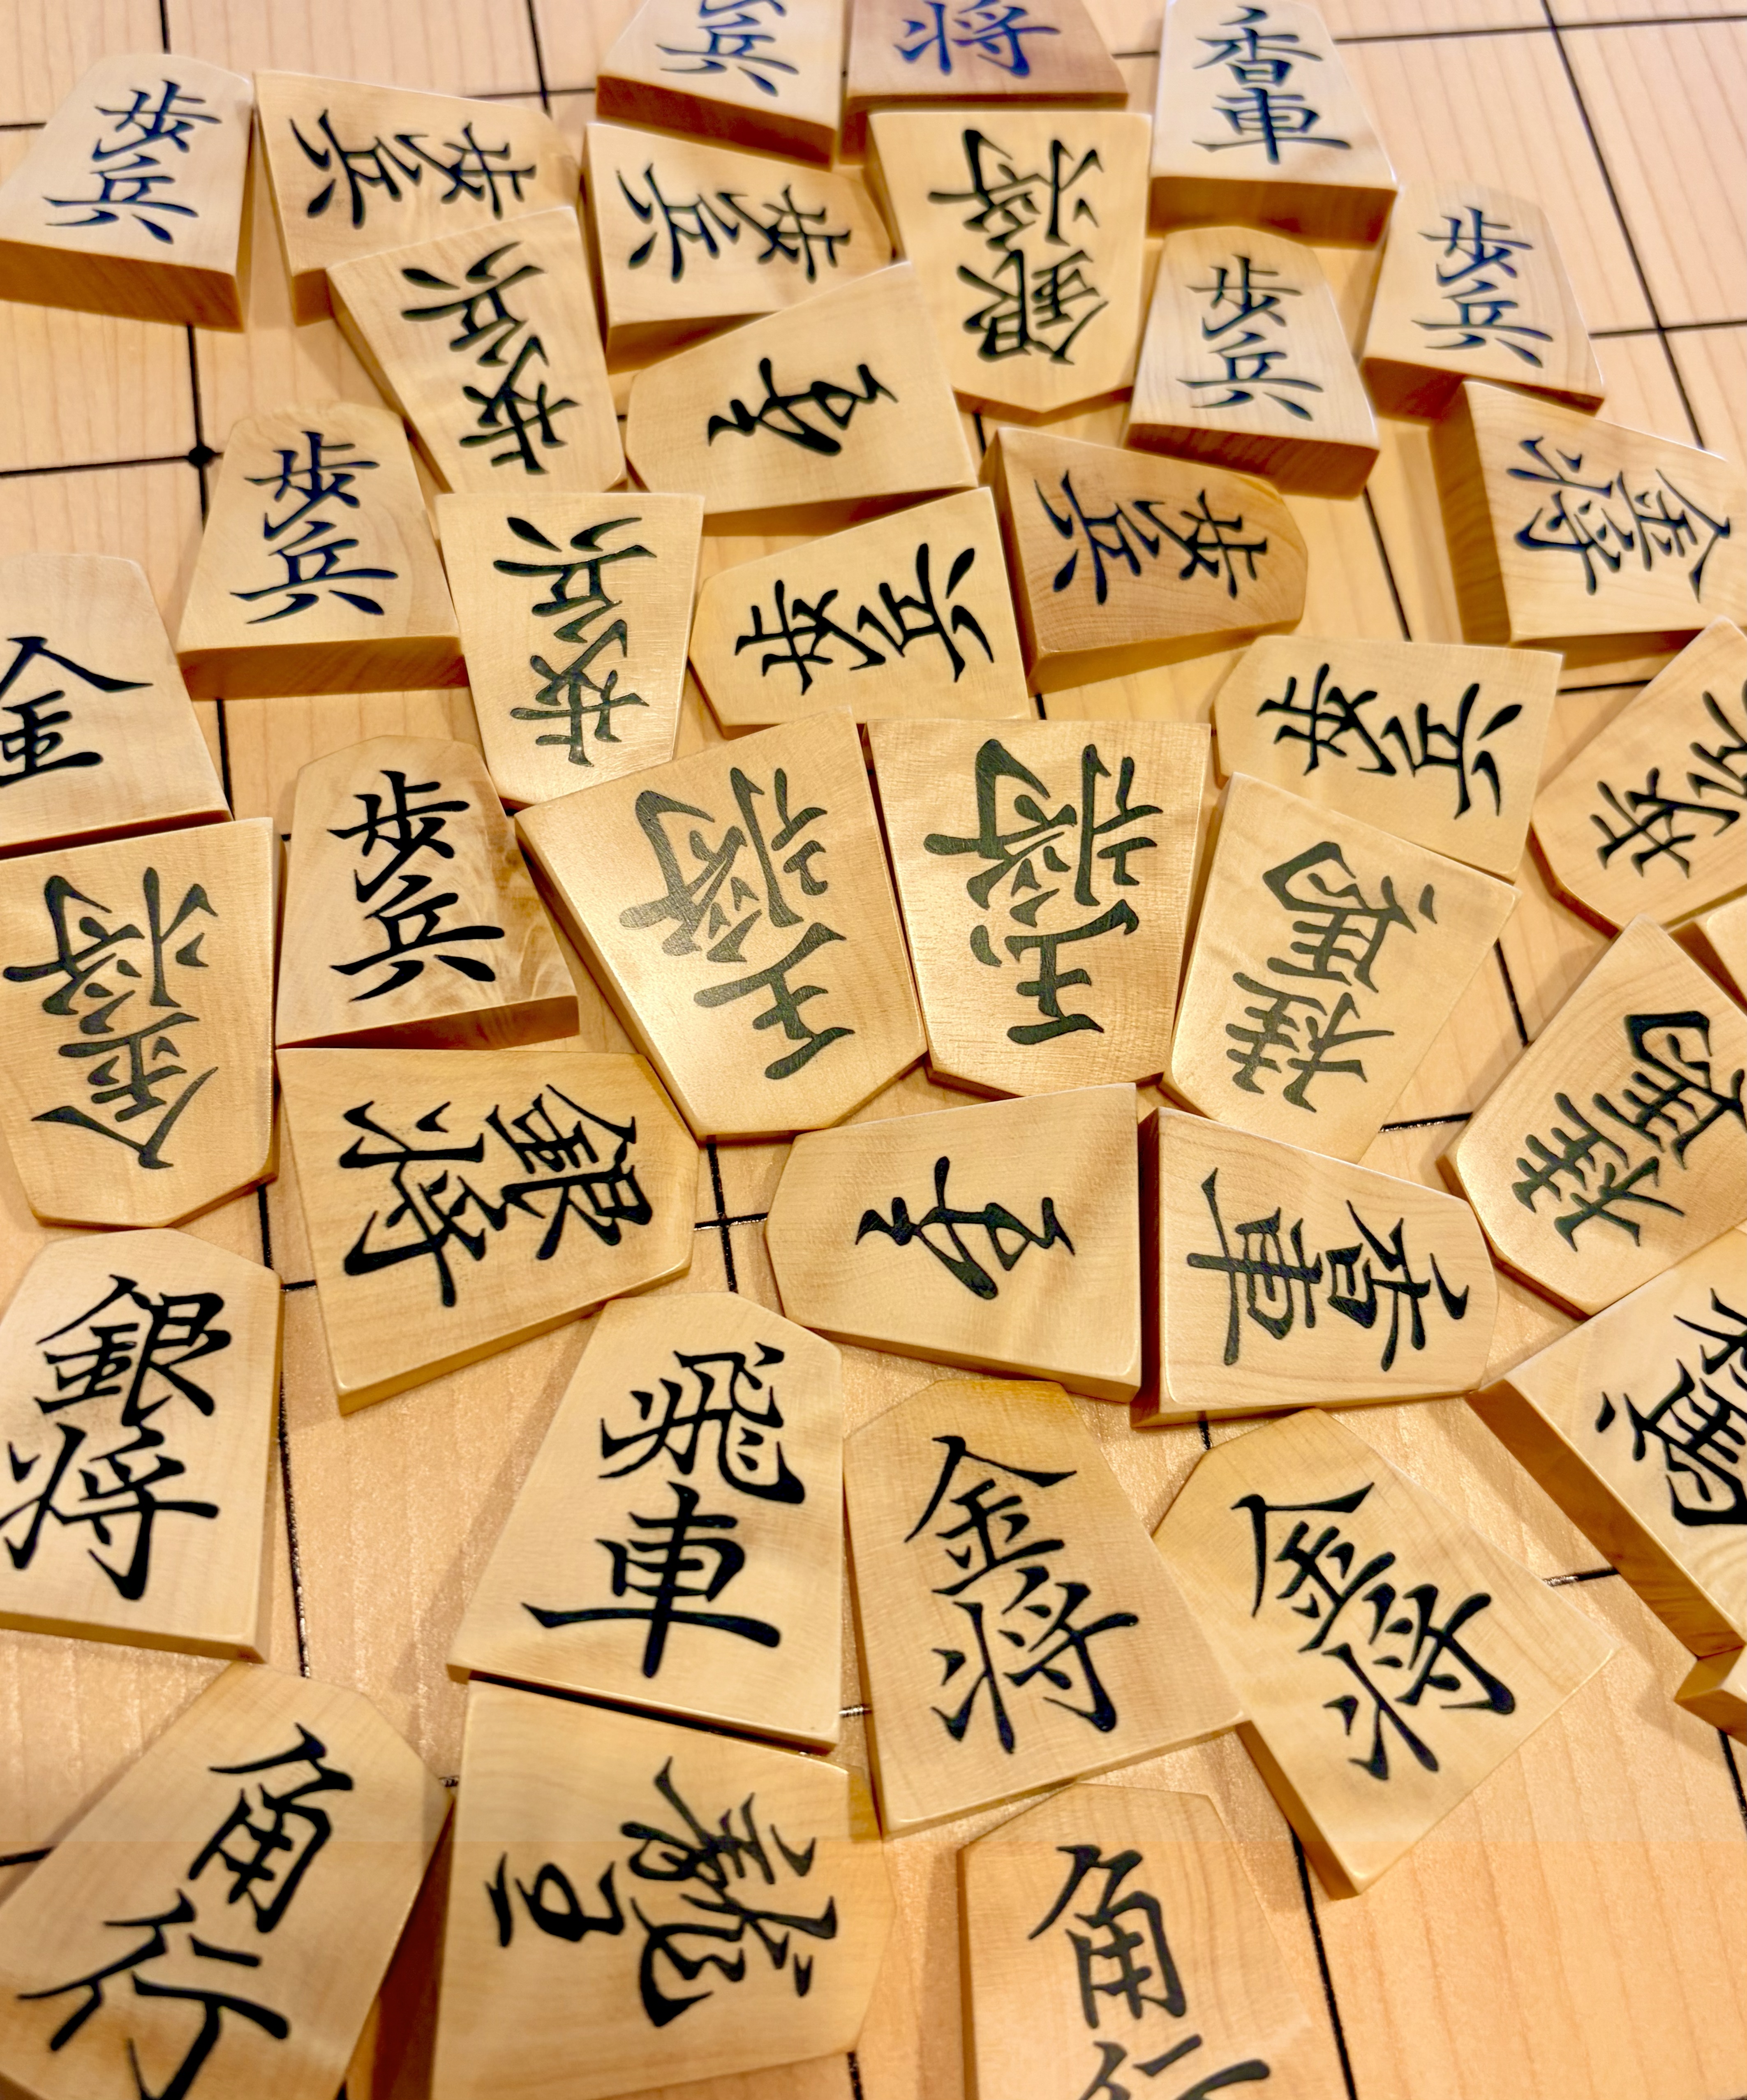 兵
将
香車
歩兵
歩兵
歩兵
銀将
歩兵
歩兵
歩兵
歩兵
歩兵
歩兵
金将
歩兵
歩兵
金
歩兵
歩兵
歩兵
王将
玉将
桂馬
金将
銀将
桂馬
香車
銀将
飛車
金将
金将
桂馬
角行
龍王
角行